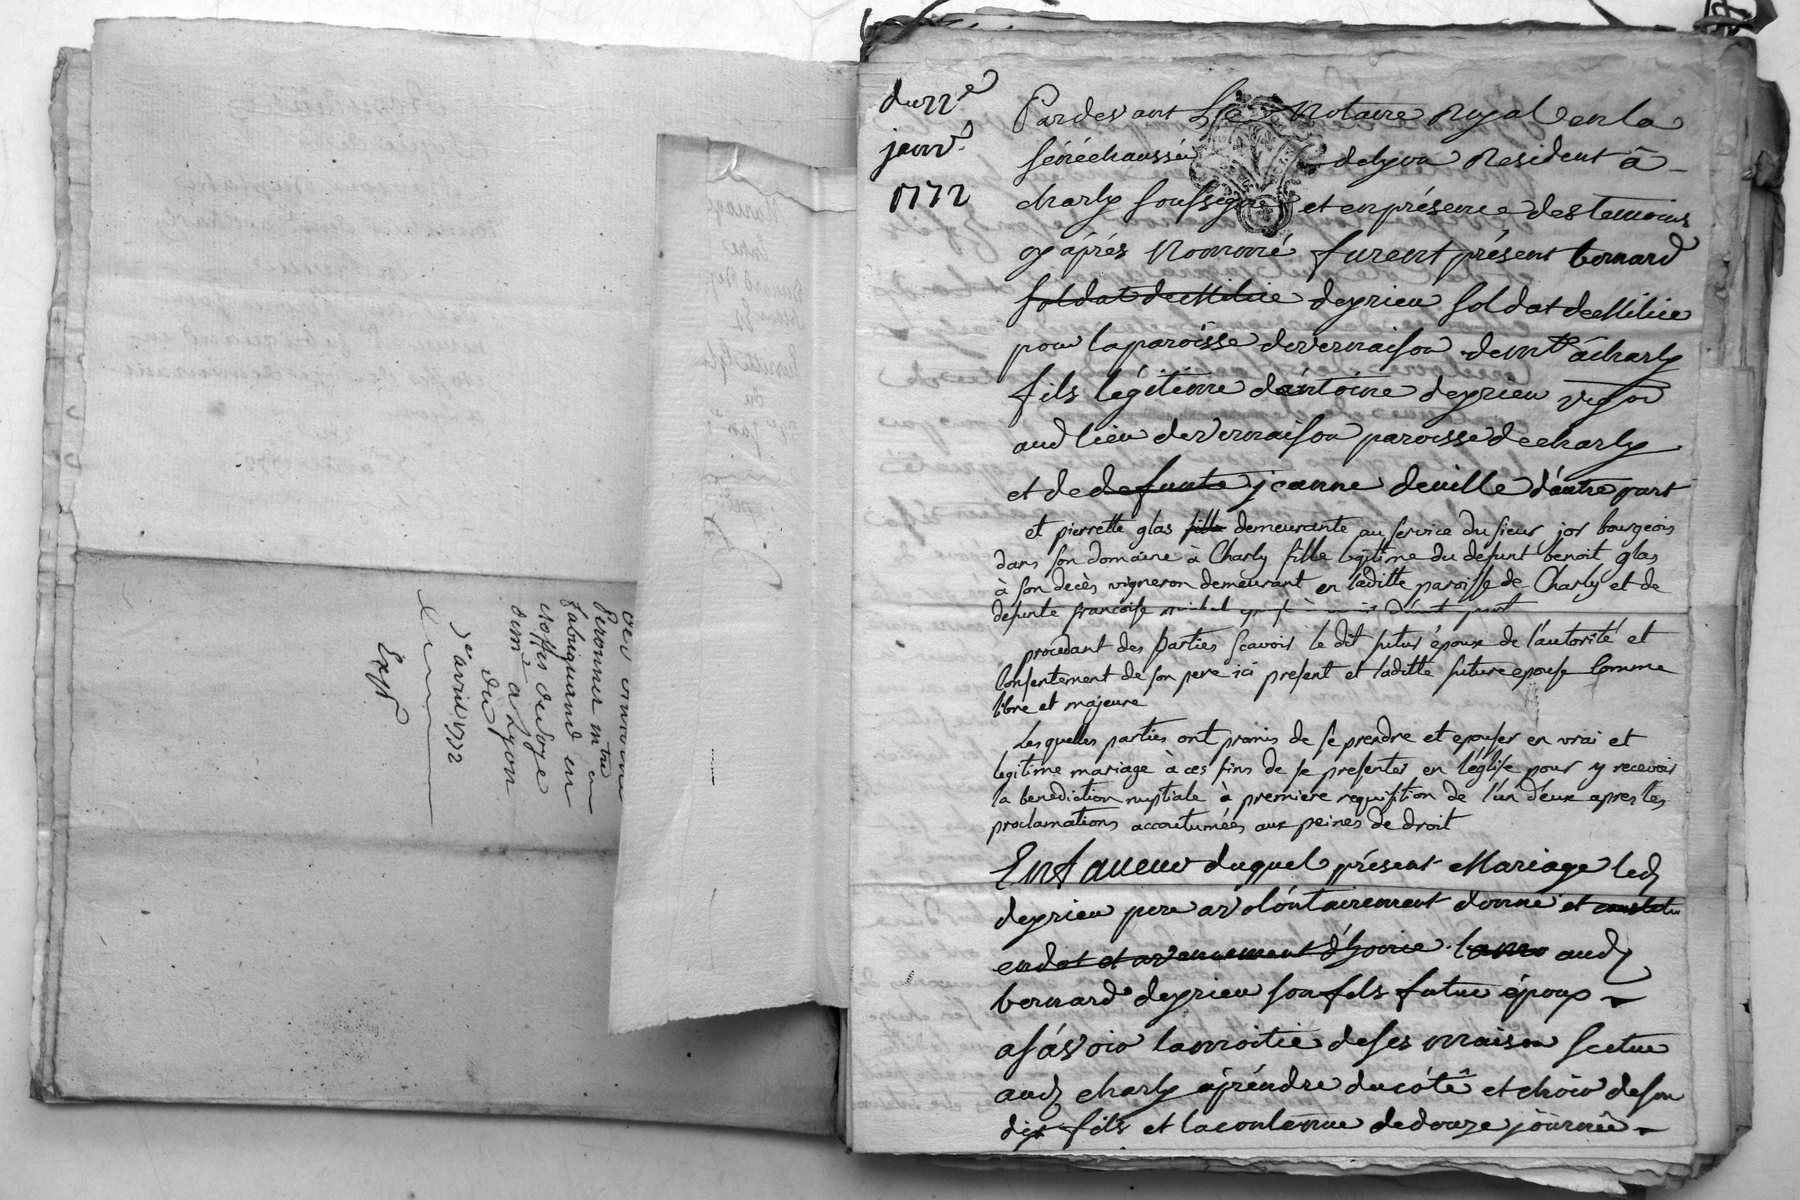 du 22e
janvr.
1772
Pardevant Le Notaire Royal en la
sénéchaussée de lyon Resident à
charly soussigné et en présence des temoins
cy aprés Nommé furent présent bernard
soldat de Milice deyrieu soldat de Milice
pour la paroisse de vernaison demt. à charly
fils légitime d'antoine deyrieu vigon
aud lieu de vernaison paroisse de charly
et de defunte jeanne deville d'autre part
et pierrette glas fille demeurante au service du sieur jor bourgeois
dans son domaine à Charly fille legitime du defunt benoit glas
à son decès vigneron demeurant en laditte paroisse de Charly et de
defunte françoise michel d'autre part
procedant des parties scavoir le dit futur époux de l'autorité et
Consentement de son pere ici present et laditte future epouse Comme
libre et majeure
Lesquelles parties ont promis de se prendre et epouser en vrai et
legitime mariage à ces fins de se presenter en l'église pour y recevoir
la benediction nuptiale à premiere requisition de l'un d'eux apres les
proclamations accoutumées aux peines de droit
En faveur duquel présent Mariage led
deyrieu pere a volontairement donné et constitu
en dot et avenement d'hoirie aud
bernard deyrieu son fils futur époux
asávoir la moitié de ses maison scitue
aud charly à prendre du côté et choix de son
dit fils et la contenue de douze journée
Peronnier mtre
fabriquand en
étoffes de soye
dem.t a Lyon
du
7e avril 1772
Expé
Mariage
Entre
Bernard
du